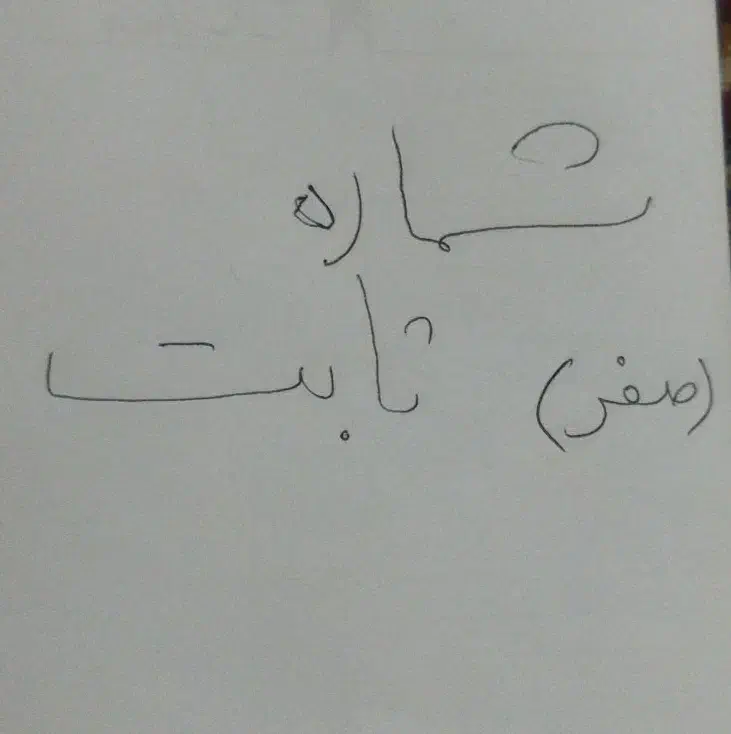 شماره
(صفر) ثابت